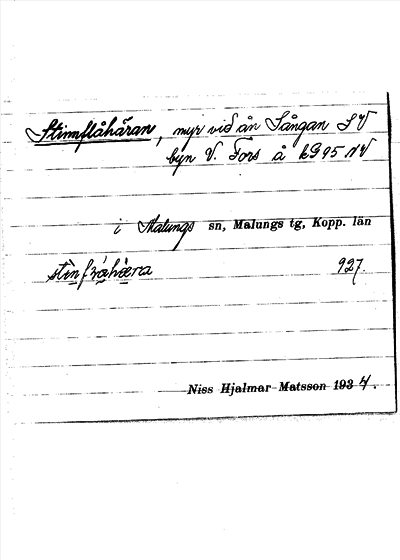 Stimflåhåran, myr vid ån Fångan SV
byn V. Fors å kG95NV
i Malungs sn, Malungs tg, Kopp. län
927.
Niss Hjalmar Matsson 1934.